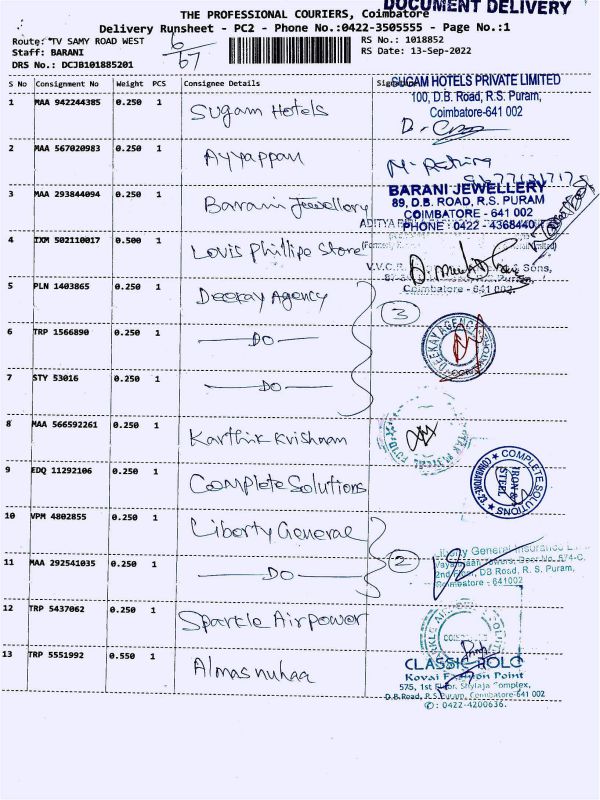 DOCUMENT DELIVERY
THE PROFESSIONAL COURIERS, Coimbatore
Delivery Runsheet - PC2 - Phone No.:0422-3505555 - Page No.:1
Route: TV SAMY ROAD WEST
6/67
RS No.: 1018852
Staff: BARANI
RS Date: 13-Sep-2022
DRS No.: DCJB101885201
S No Consignment No Weight PCS Consignee Details
1 MAA 942244385 0.250 1 Sugam Hotels
SUGAM HOTELS PRIVATE LIMITED
100, D.B. Road, R.S. Puram,
Coimbatore-641 002
2 MAA 567020983 0.250 1 Ayyappan
3 MAA 293844094 0.250 1 Barani Jewellory
BARANI JEWELLERY
89, D.B. ROAD, R.S. PURAM
COIMBATORE - 641 002
PHONE : 0422 - 4368440
4 IXM 502110017 0.500 1 Louis Phillipe Store
ADITYA
(Formerly
V.V.C.R. Sons,
Coimbatore - 641 002.
5 PLN 1403865 0.250 1 Deekay Agency
3
6 TRP 1566890 0.250 1 — DO —
DEEKAY AGENCY
7 STY 53016 0.250 1 — DO —
8 MAA 566592261 0.250 1 Karthik Krishnan
9 EDQ 11292106 0.250 1 Complete Solutions
COMPLETE SOLUTIONS
IRON & STEEL
10 VPM 4802855 0.250 1 Liberty General
2
Liberty General Insurance
11 MAA 292541035 0.250 1 — DO —
2nd Floor, DB Road, R. S. Puram,
Coimbatore - 641002
12 TRP 5437062 0.250 1 Sparkle Airpower
13 TRP 5551992 0.550 1 Almas nuhaa
CLASSIC POLO
Kovai Fashion Point
575, 1st Floor, Shylaja Complex,
D.B.Road, R.S.Puram, Coimbatore-641 002
✆: 0422-4200636.